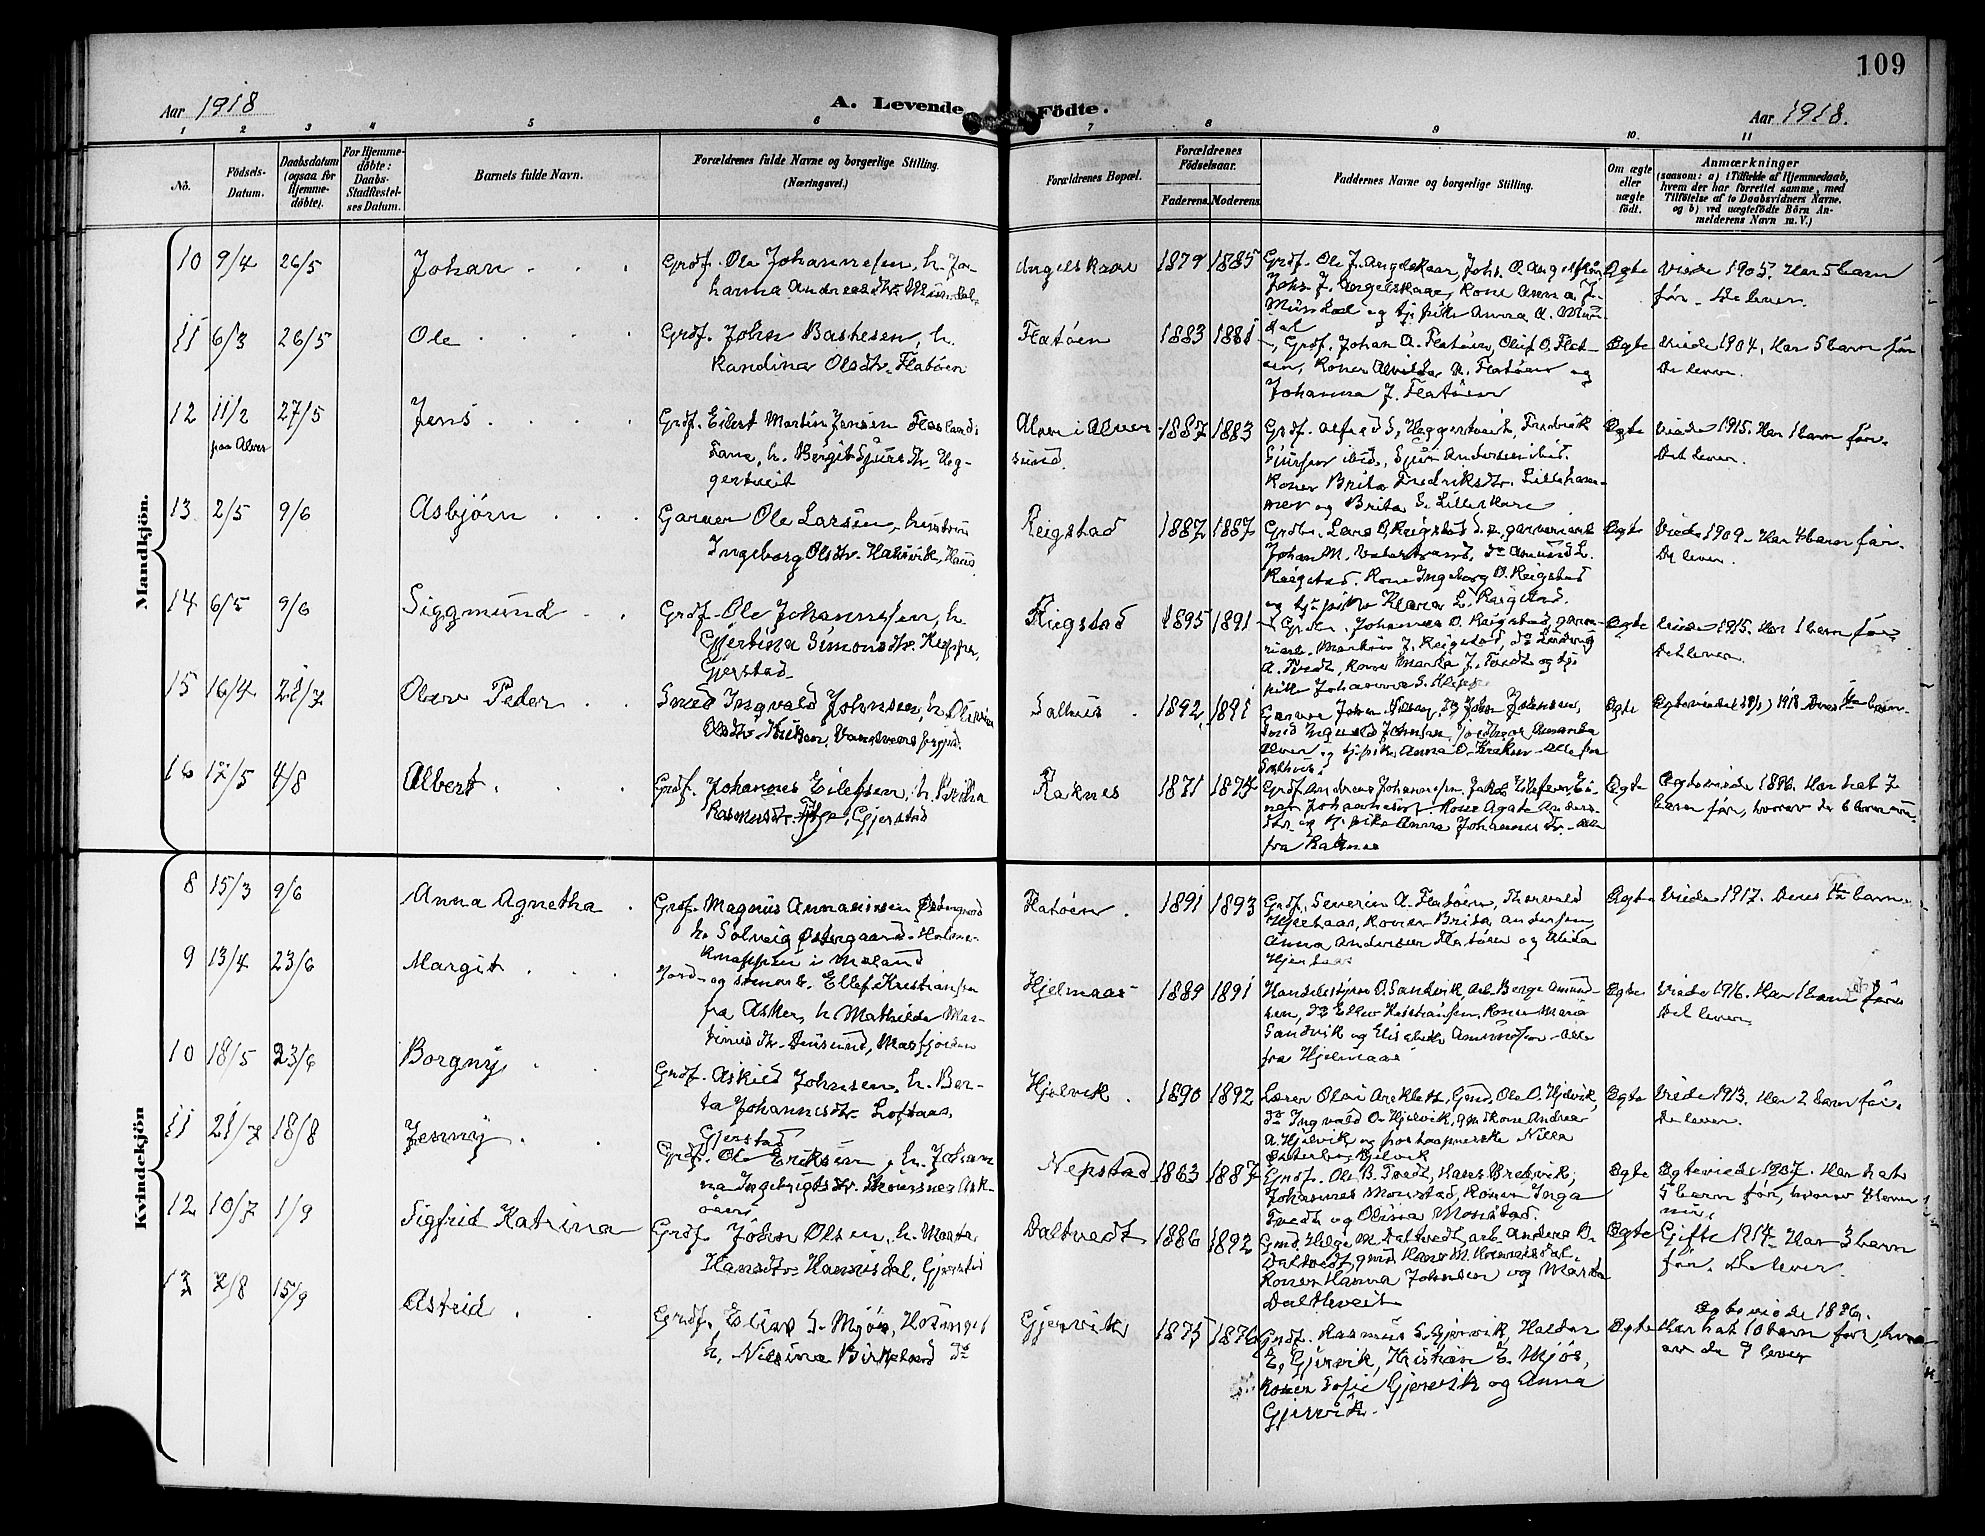 109
Aar 1918
A. Levende Födte.
Aar 1918.
1 2 3 4 5 6 7 8 9 10. 11
No.
Födsels-Datum.
Daabsdatum (ogsaa for Hjemme-döbte).
For Hjemme-döbte: Daabs-Stadfæstel-ses Datum.
Barnets fulde Navn.
Forældrenes fulde Navne og borgerlige Stilling. (Næringsvei.)
Forældrenes Bopæl.
Forældrenes Födselsaar.
Faderens. Moderens.
Faddernes Navne og borgerlige Stilling.
Om ægte eller uægte født.
Anmærkninger
(saasom: a) i Tilfælde af Hjemmedaab, hvem der har forrettet samme, med Tilföielse af to Daabsvidners Navne, og b) ved uægtefödte Börn An-melderens Navn m. V.)
Mandkjön.
10 9/4 26/5 Johan Grdf. Ole Johannesen, h. Jo-
hanna Andreasdtr. Mundal.
1879 1885 Ægte Viede 1905. Har 5 barn
før. De lever.
11 6/3 26/5 Ole Grdf. John Bastesen, h.
Randina Olsdtr. Flatøen
Flatøen 1883 1881 Grdf. Johan A. Flatøen, Oluf O. Flat-
øen, Koner Alvilda A. Flatøen og
Johanna J. Flatøen
Ægte Viede 1904. Har 5 barn før
De lever.
12 11/2 27/5 Jens
paa Alver
Grdf. Eilert Martin Jensen
Fane, h. Bergit Sjursdtr. Heg-
gertveit
Alver i Alver-
sund.
1887 1883 Grdf. Alfred S. Heggertveit, Fredrik
Sjursen ibid., Sjur Andersen ibid.
Koner Brita Fredriksdtr. Lilleham-
mer og Brita S. Lilleskare
Ægte Viede 1915. Har 1 barn før.
Det lever.
13 2/5 9/6 Asbjørn Garver Ole Larsen, hustru
Ingeborg Olsdtr. Haus
Reigstad 1887 1887 Grdbr. Lars O. Reigstad
Johan M. Amund L.
Reigstad. Kone Ingeborg O. Reigstad
og Klara L. Reigstad.
Ægte Viede 1909. Har 4 barn før.
De lever.
14 6/5 9/6 Siggmund Grdf. Ole Johannesen, h.
Gjertina Simonsdtr.
Gjerstad.
Reigstad 1895 1891 Johannes O. Reigstad
J. Reigstad, Ludvig
A. Tvedt, Kone Marta J. Tvedt og tj.
pike Johanna S.
Ægte Viede 1915. Har 1 barn før.
Det lever.
15 16/4 21/7 Olav Peder Smed Ingvald Johnsen, h. Olivia
Olsdtr.
Salhus 1892 1891 Garver Johan John Johnsen,
Smed Ingvald Johnsen, Jordmor Amanda
Alver og tj.pik. Anna O. alle fra
Salhus.
Ægte Ægteviede 1918. Deres 1ste barn.
16 17/5 4/8 Albert Grdf. Johannes Eilefsen, h. Britha
Rasmusdtr. Gjerstad
Raknes 1871 1875 Grdf. Andreas Johannesen, Jakob Eilefsen, Ei-
nar Johannesen. Kone Agate Anders-
dtr. og tj.pike Anna Johannesdtr. alle
fra Raknes
Ægte Ægteviede 1896. Har hat 7
barn før, hvorav de 6 lever nu.
Kvindekjön
8 15/3 9/6 Anna Agnetha Grdf. Magnus Annanissen
h. Solveig Østergaard Holme-
knappen i Meland
Flatøen 1891 1893 Grdf. Severin A. Flatøen, Thorvald
Hjertaas, Koner Brita Andersen
Anna Andersen Flatøen og Alida
Hjertaas
Ægte Viede 1917. Deres 1ste barn.
9 13/4 23/6 Margit Jord- og Ellef Kristiansen
fra Asker, h. Mathilde Mar-
tinusdtr. Masfjorden
Hjelmaas 1889 1891 O. Sandvik, Arb. Berge Amund-
sen, do Ellev Kristiansen, Koner Maria
Sandvik og Elisabeth Amundsen - alle
fra Hjelmaas
Ægte Viede 1916. Har 1 barn før
Det lever.
10 18/5 23/6 Borgny Grdf. Askild Johnsen, h. Ber-
ta Johannesdtr. Loftaas,
Gjerstad
Hjelvik 1890 1892 Lærer Olai Areklett, Gmd. Ole O. Hjelvik,
do Ingvald O. Hjelvik, Gmdkone Andrea
A. Hjelvik og Nilla
Hjelvik
Ægte Viede 1913. Har 2 barn før.
De lever.
11 21/7 18/8 Jenny Grdf. Ole Eriksen, h. Johan-
na Ingebrigtsdtr.
Nepstad 1863 1887 Grdf. Ole B. Tvedt, Hans Bredvik,
Johannes Monstad, Koner Inga
Tvedt og Olina Monstad.
Ægte Ægteviede 1907. Har hat
5 barn før, hvorav 4 lever
nu.
12 10/7 1/9 Sigfrid Katrina Grdf. John Olsen, h. Marta
Hansdtr. Hannisdal, Gjerstad
Daltvedt 1886 1892 Gmd. Helge M. Daltvedt, arb. Anders O.
Daltvedt, gmd. Hans M. Hannisdal.
Koner Hanna Johnsen og Marta
Daltveit
Ægte Gifte 1914. Har 3 barn
før. De lever.
13 7/8 15/9 Astrid Grdf. Elias S. Mjøs, Hosanger
h. Nilsina Birkeland do
Gjervik 1875 1876 Grdf. Rasmus S. Gjervik, Haldor
E. Gjervik, Kristian E. Mjøs,
Koner Sofie Gjervik og Anna
Gjervik.
Ægte Ægteviede 1896.
Har hat 10 barn før, hvor-
av de 9 lever